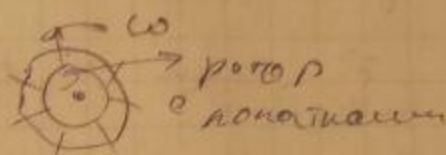 ω
ротор
с лопатками